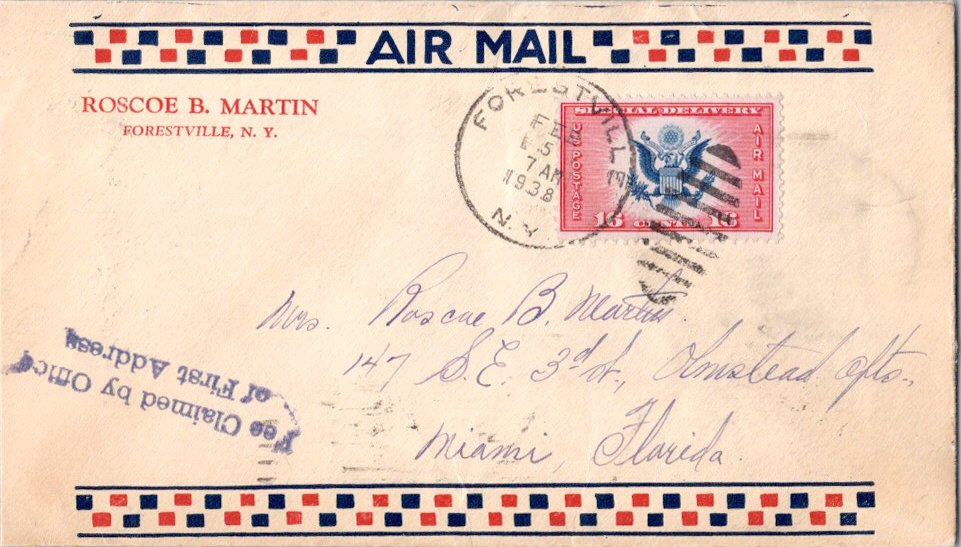 AIR MAIL
ROSCOE B. MARTIN
FORESTVILLE, N. Y.
FORESTVILLE
FEB
5
7 AM
1938
N.Y.
SPECIAL DELIVERY
U.S. POSTAGE
AIR MAIL
16 CENTS 16
Mrs. Roscoe B. Martin
147 S.E. 3rd St., Olmstead Apts.,
Miami, Florida
Fee Claimed by Office
of First Address